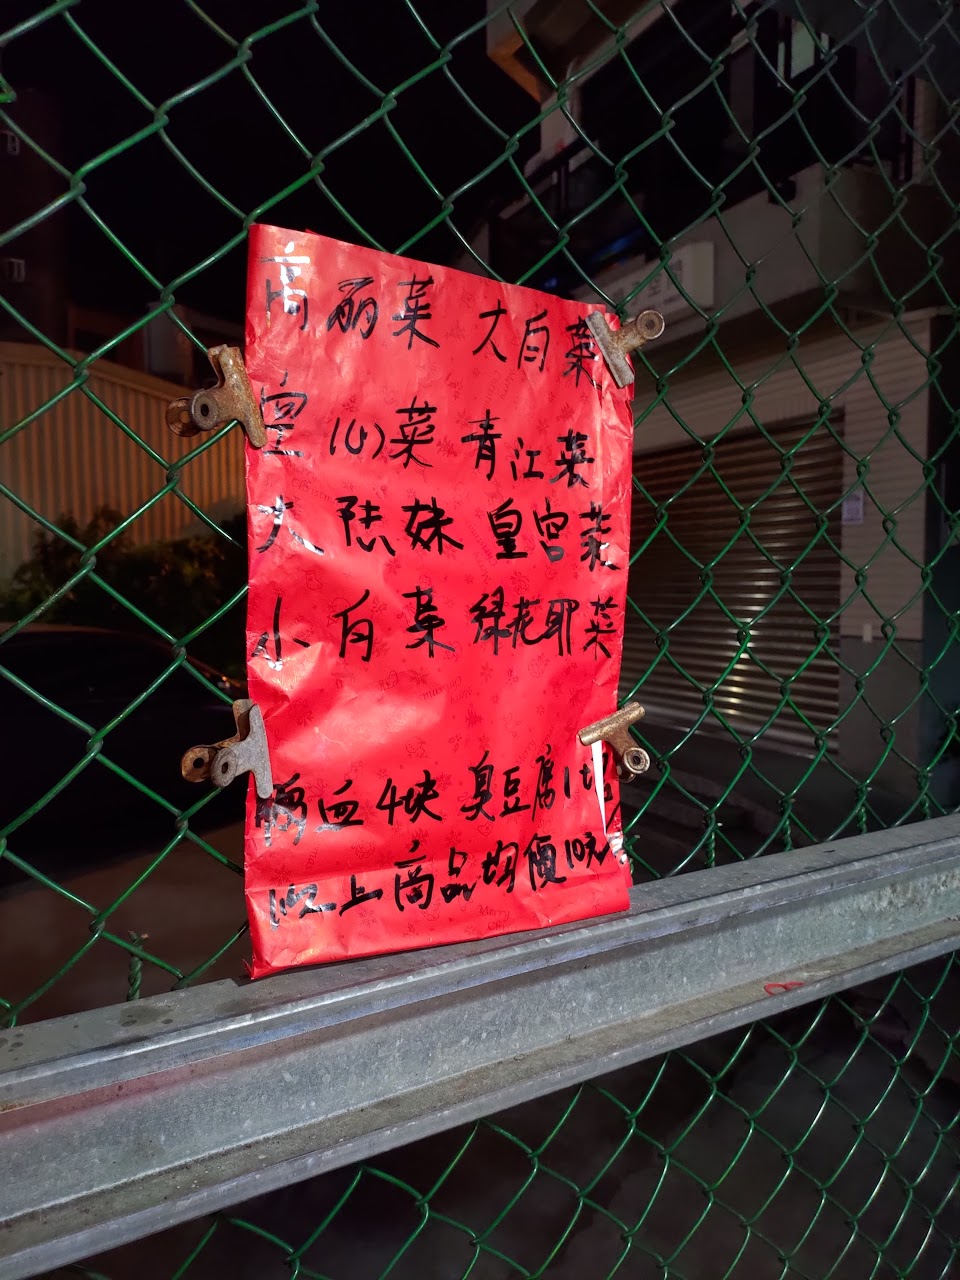 高丽菜 大白菜
空心菜 青江菜
大陆妹 皇宮菜
小白菜 绿花耶菜
鴨血4块 臭豆腐1块
以上商品均價10元